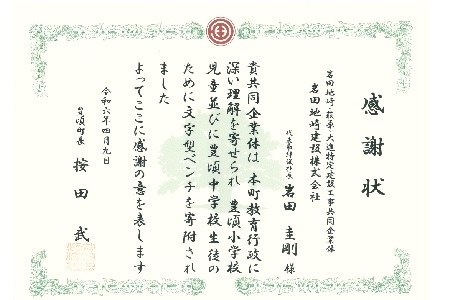 感謝状
岩田地崎・萩原・大進特定建設工事共同企業体
岩田地崎建設株式会社
代表取締役社長 岩田圭剛様
貴共同企業体は 本町教育行政に
深い理解を寄せられ 豊頃小学校
児童並びに豊頃中学校生徒の
ために文字型ベンチを寄附され
ました
よってここに感謝の意を表します
令和六年四月九日
豊頃町長 按田武